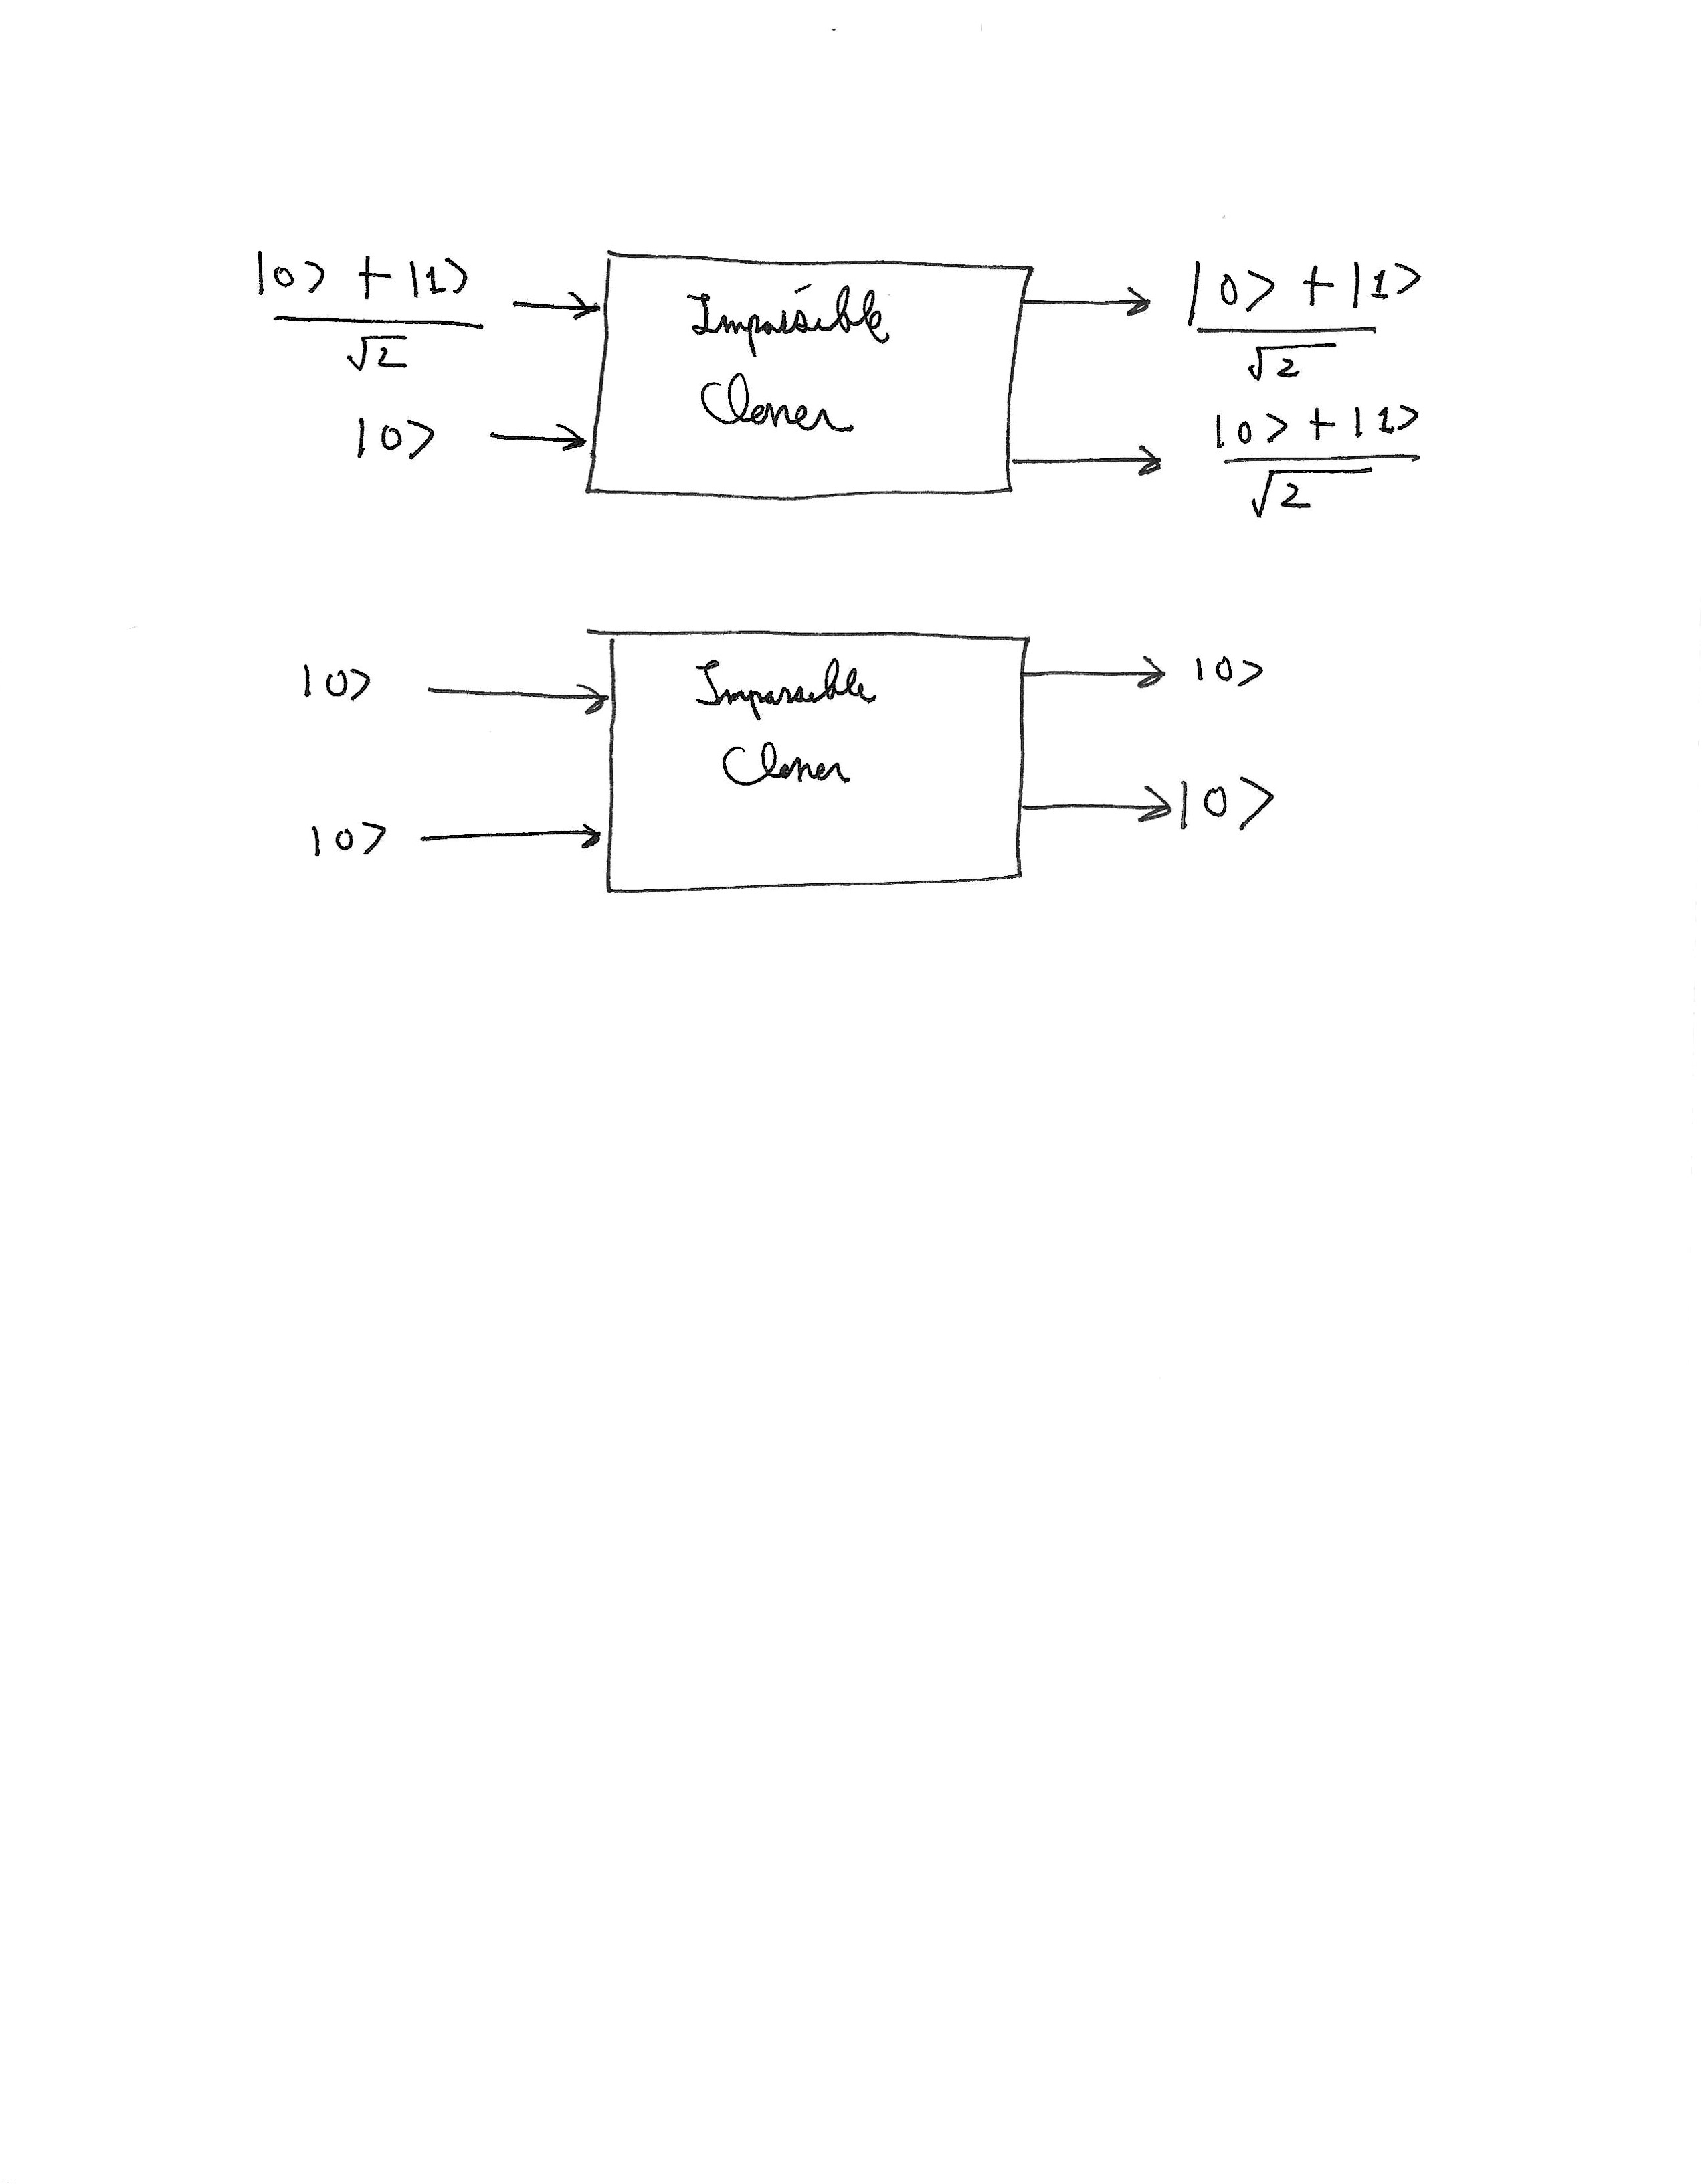 |0> + |1>
√2
|0>
Impossible
Cloner
|0> + |1>
√2
|0> + |1>
√2
|0>
|0>
Impossible
Cloner
|0>
|0>